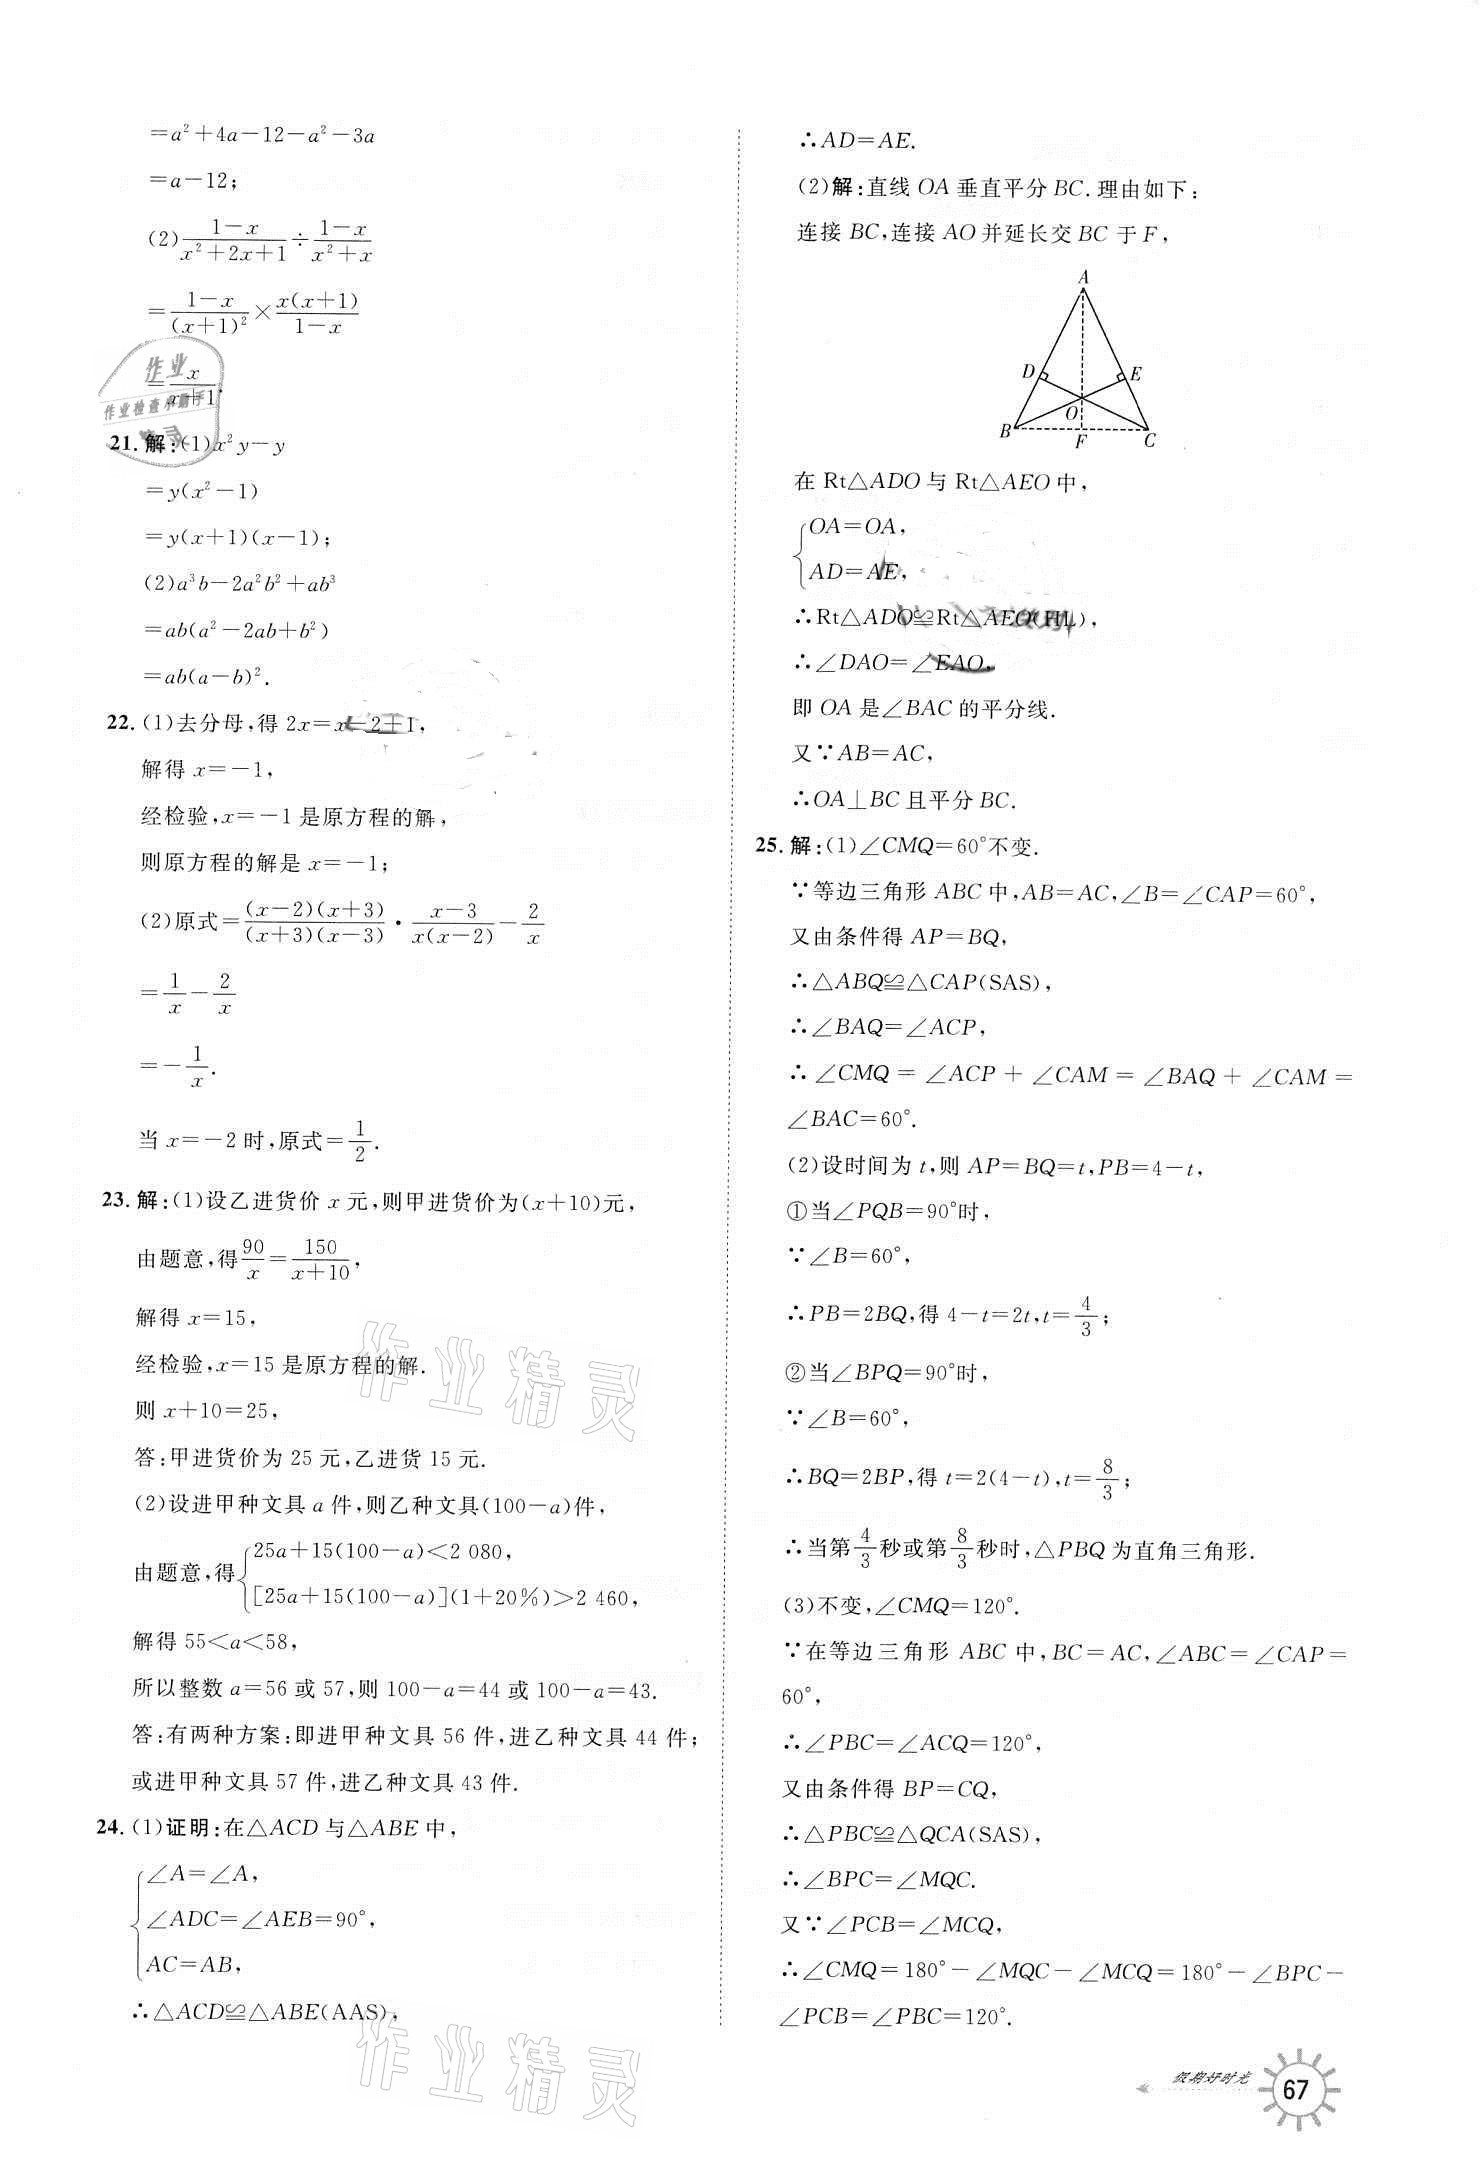 =a²+4a-12-a²-3a
=a-12;
(2)(1-x)/(x²+2x+1)÷(1-x)/(x²+x)
=(1-x)/(x+1)²×x(x+1)/(1-x)
=x/(x+1).
21.解:(1)x²y-y
=y(x²-1)
=y(x+1)(x-1);
(2)a³b-2a²b²+ab³
=ab(a²-2ab+b²)
=ab(a-b)².
22.(1)去分母,得 2x=x-2+1,
解得 x=-1,
经检验,x=-1是原方程的解,
则原方程的解是 x=-1;
(2)原式=(x-2)(x+3)/(x+3)(x-3)·(x-3)/x(x-2)-2/x
=1/x-2/x
=-1/x.
当 x=-2 时,原式=1/2.
23.解:(1)设乙进货价 x 元,则甲进货价为(x+10)元,
由题意,得90/x=150/(x+10),
解得 x=15,
经检验,x=15是原方程的解.
则 x+10=25,
答:甲进货价为 25 元,乙进货 15 元.
(2)设进甲种文具 a 件,则乙种文具(100-a)件,
由题意,得{25a+15(100-a)<2 080,
[25a+15(100-a)](1+20%)>2 460,
解得 55<a<58,
所以整数 a=56 或 57,则 100-a=44 或100-a=43.
答:有两种方案:即进甲种文具 56 件,进乙种文具 44 件;
或进甲种文具 57 件,进乙种文具 43 件.
24.(1)证明:在△ACD与△ABE中,
{∠A=∠A,
∠ADC=∠AEB=90°,
AC=AB,
∴△ACD≌△ABE(AAS),
∴AD=AE.
(2)解:直线 OA 垂直平分 BC.理由如下:
连接 BC,连接 AO 并延长交 BC 于 F,
A
D
E
O
B
F
C
在 Rt△ADO 与 Rt△AEO 中,
{OA=OA,
AD=AE,
∴Rt△ADO≌Rt△AEO(HL),
∴∠DAO=∠EAO,
即 OA 是∠BAC 的平分线.
又∵AB=AC,
∴OA⊥BC 且平分 BC.
25.解:(1)∠CMQ=60°不变.
∵等边三角形 ABC 中,AB=AC,∠B=∠CAP=60°,
又由条件得 AP=BQ,
∴△ABQ≌△CAP(SAS),
∴∠BAQ=∠ACP,
∴∠CMQ=∠ACP+∠CAM=∠BAQ+∠CAM=
∠BAC=60°.
(2)设时间为 t,则 AP=BQ=t,PB=4-t,
①当∠PQB=90°时,
∵∠B=60°,
∴PB=2BQ,得 4-t=2t,t=4/3;
②当∠BPQ=90°时,
∵∠B=60°,
∴BQ=2BP,得 t=2(4-t),t=8/3;
∴当第4/3秒或第8/3秒时,△PBQ 为直角三角形.
(3)不变,∠CMQ=120°.
∵在等边三角形 ABC 中,BC=AC,∠ABC=∠CAP=
60°,
∴∠PBC=∠ACQ=120°,
又由条件得 BP=CQ,
∴△PBC≌△QCA(SAS),
∴∠BPC=∠MQC.
又∵∠PCB=∠MCQ,
∴∠CMQ=180°-∠MQC-∠MCQ=180°-∠BPC-
∠PCB=∠PBC=120°.
假期好时光
67
作业精灵
作业精灵
作业
作业检查小助手
精灵